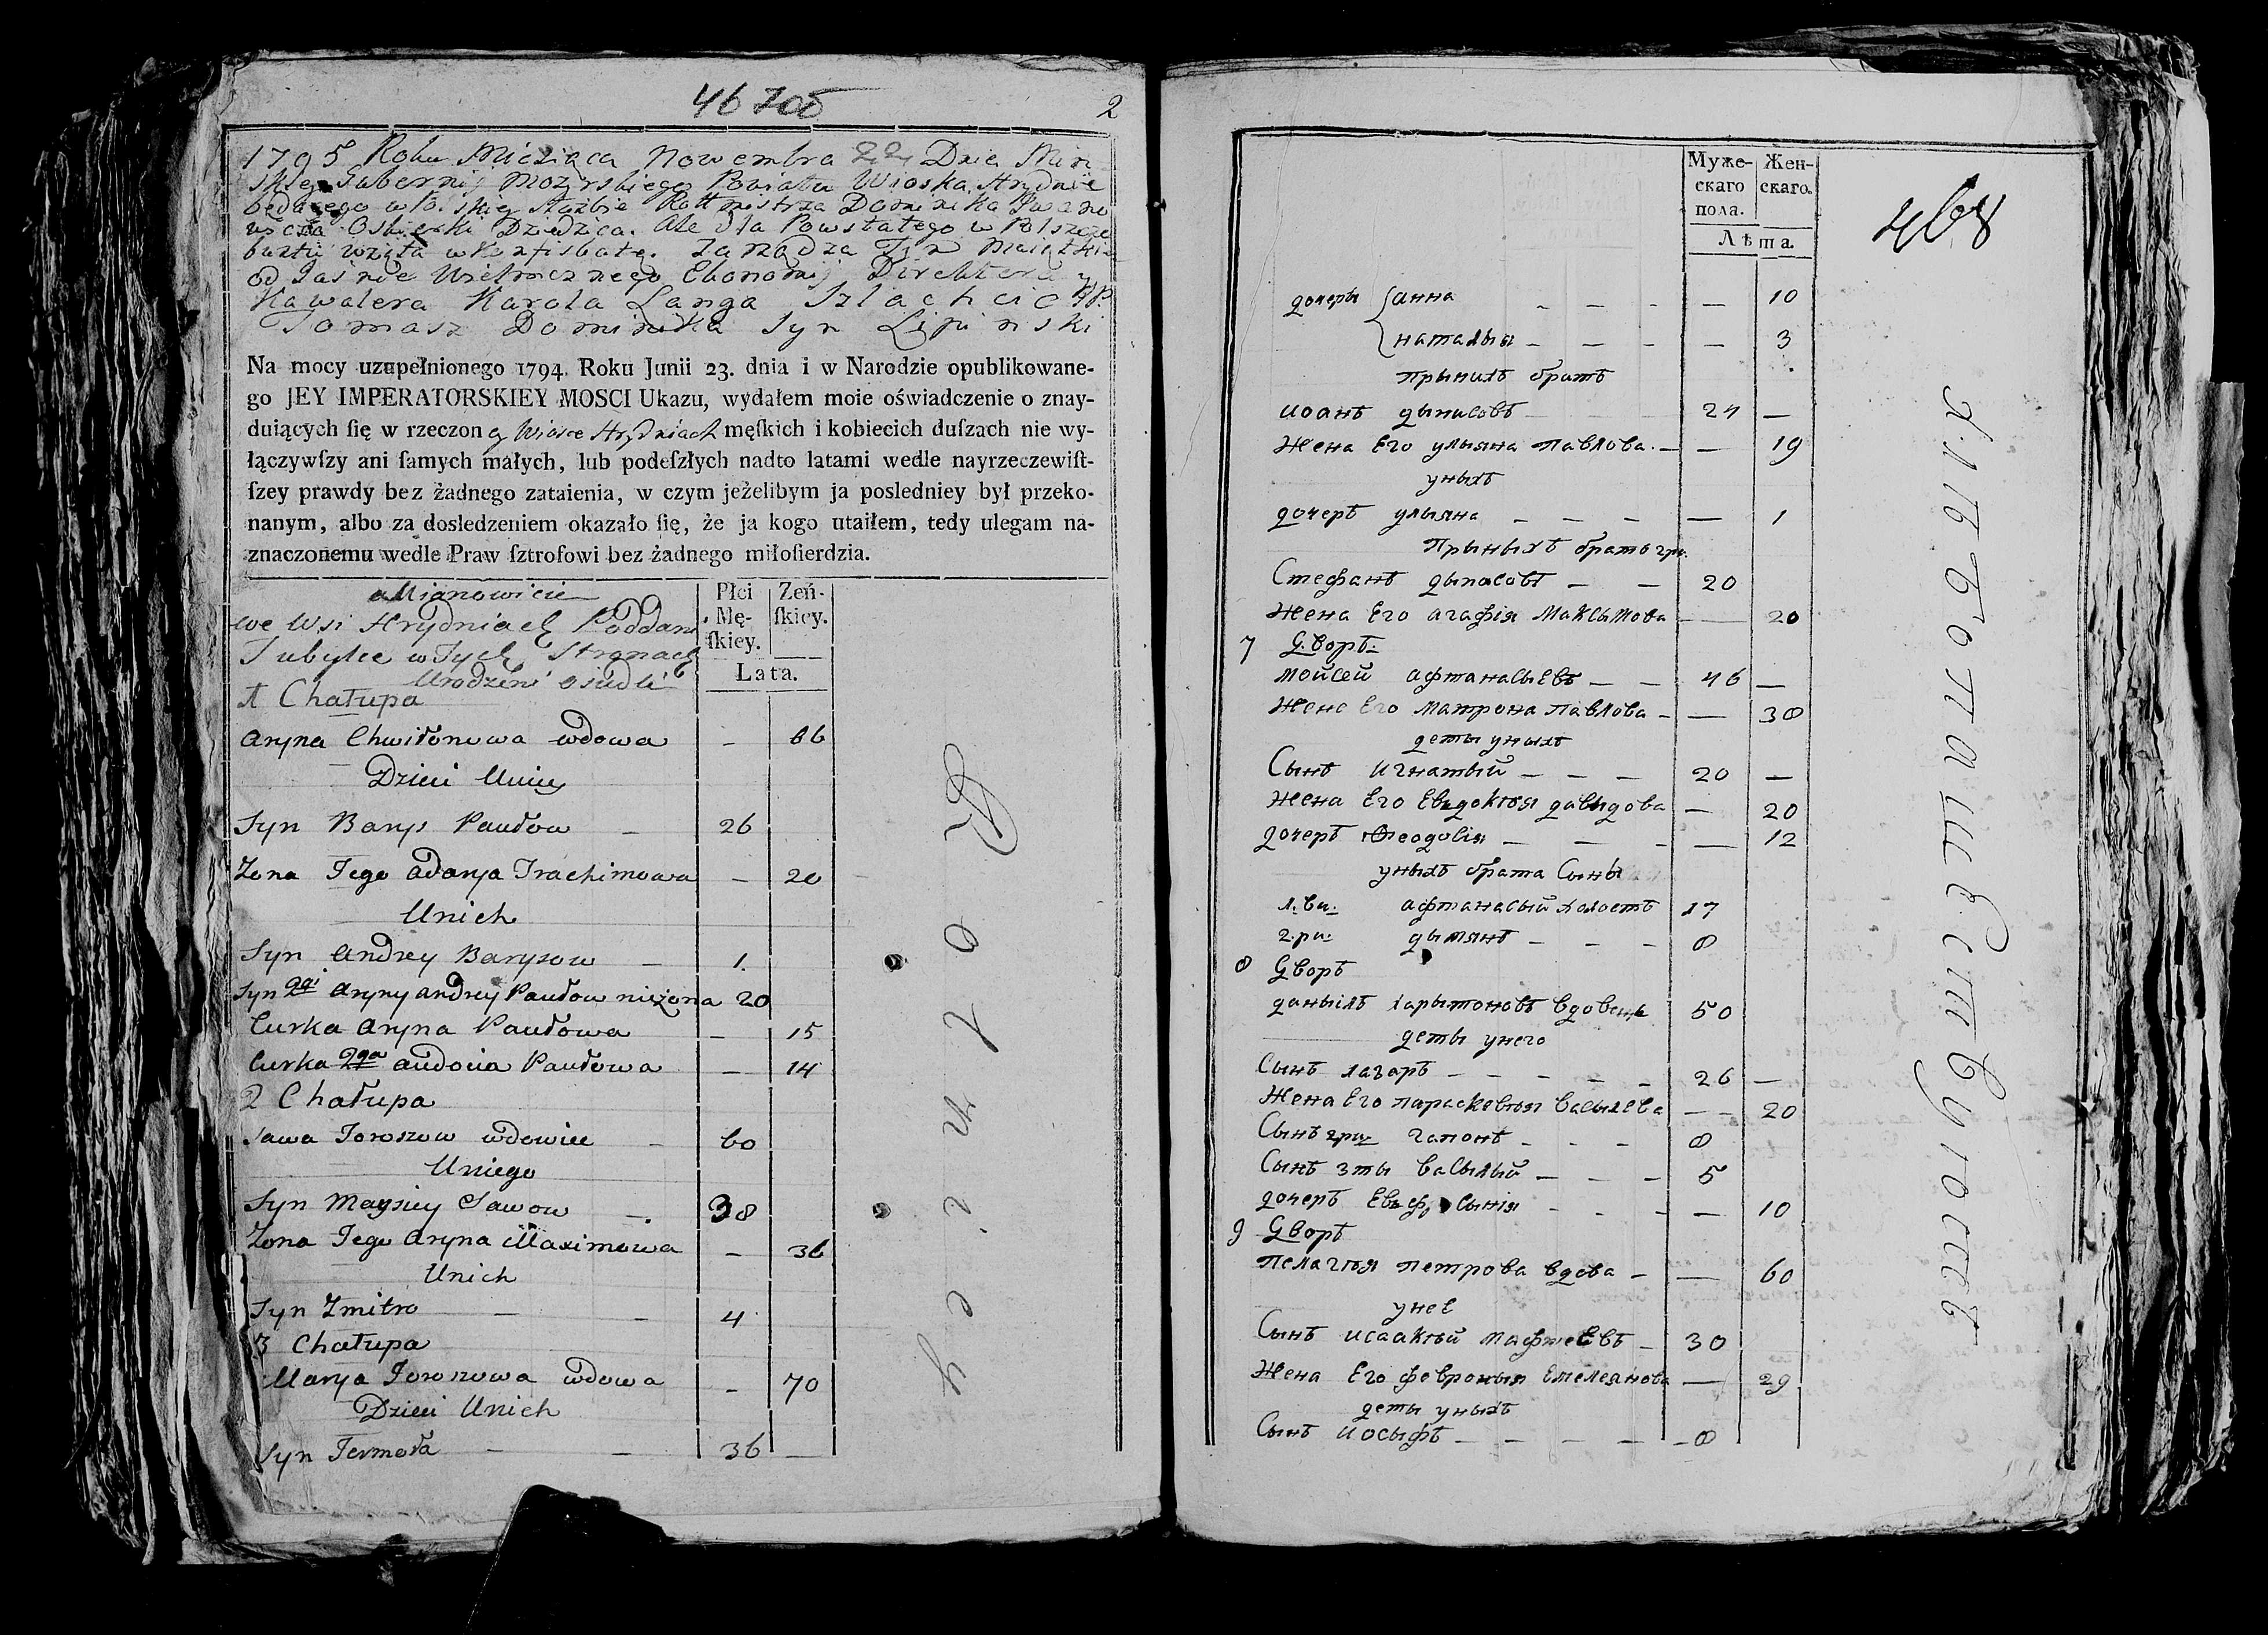 46 708
2
1795 Roku Miesiąca Nowembra 22 Dnia Min
skiey Gubernij Mozyrskiego Powiatu Wioska Hrydnie
będącego w skiey służbie Rottmistrza Dominika Iwano
Osbierki Dziedzica. Ale dla Powstałego w Polszcze
buntu wzięta w konfiskatę. Zarządza Tym
od Jasnie Wielmoznego Ekonomij Direktera y
Kawalera Karola Langa Szlachcic JP
Tomasz Dominika Syn Lipinski
Na mocy uzupełnionego 1794. Roku Junii 23. dnia i w Narodzie opublikowane-
go JEY IMPERATORSKIEY MOSCI Ukazu, wydałem moie oświadczenie o znay-
duiących ſię w rzeczoney Wiosce Hrydniach męſkich i kobiecich duſzach nie wy-
łączywſzy ani ſamych małych, lub podeſzłych nadto latami wedle nayrzeczewiſt-
ſzey prawdy bez żadnego zataienia, w czym jeżelibym ja posledniey był przeko-
nanym, albo za dosledzeniem okazało ſię, że ja kogo utaiłem, tedy ulegam na-
znaczonemu wedle Praw ſztrofowi bez żadnego miłoſierdzia.
Mianowicie
we Wsi Hrydniach Poddani
Tubylce w Tych Stronach
Urodzeni osiedli
Płci Mę-ſkiey. Zeń-ſkiey.
Lata.
1 Chałupa
Aryna Chwiłonowa wdowa – 66
Dzieci Uniey
Syn Barys Pawłow – 26
Zona Jego Adarya Trachimowa – 20
Unich
Syn Andrey Barysow – 1.
Syn 2gi Aryny Andrey Pawłow nieżona 20
Curka Aryna Pawłowa – 15
Curka 2ga Audocia Pawłowa – 14
2 Chałupa
Sawa Joroszow wdowiec – 60
Uniego
Syn Maysiey Sawow – 38
Zona Jego Aryna Maximowa – 36
Unich
Syn Zmitro – – 4
3 Chałupa
Marya Joroszowa wdowa – 70
Dzieci Unich
Syn Jermoła – – 36 –
Муже-скаго пола. Жен-скаго.
Лѣта.
468
дочеры анна – – – – 10
наталыя – – – – 3
Прыныхъ братъ
иоанъ дынисовъ 24 –
Жена Его улыяна павлова. – – 19
уныхъ
дочеръ улыяна – – – – 1
Прыныхъ братъ
Стефанъ дынисовъ – – 20
Жена Его агафія Максымова – 20
7 Дворъ:
мойсей афтанасыевъ – – 46 –
Жена Его матрона павлова – – 30
деты уныхъ
Сынъ игнатый – – – 20 –
жена Его Евдокѣя давыдова – 20
дочеръ Феодосія – – – – 12
уныхъ брата Сыны
афтанасый холостъ 17
дымянъ – – – 8
8 Дворъ
данылъ харытоновъ вдовецъ 50
деты унего
Сынъ лазаръ – – – – – 26 –
Жена Его параскевѣя васылева – – 20
Сынъ гапонъ – – – 8
Сынъ 3ты васылый – – – 5
дочеръ Евфросынія – – – – 10
9 Дворъ
пелагѣя петрова вдова – – 60
унеі
Сынъ исаакѣй мафтеевъ – 30
Жена Его февроныя Емелеянова – 29
деты уныхъ
Сынъ иосыфъ – – – – – 8